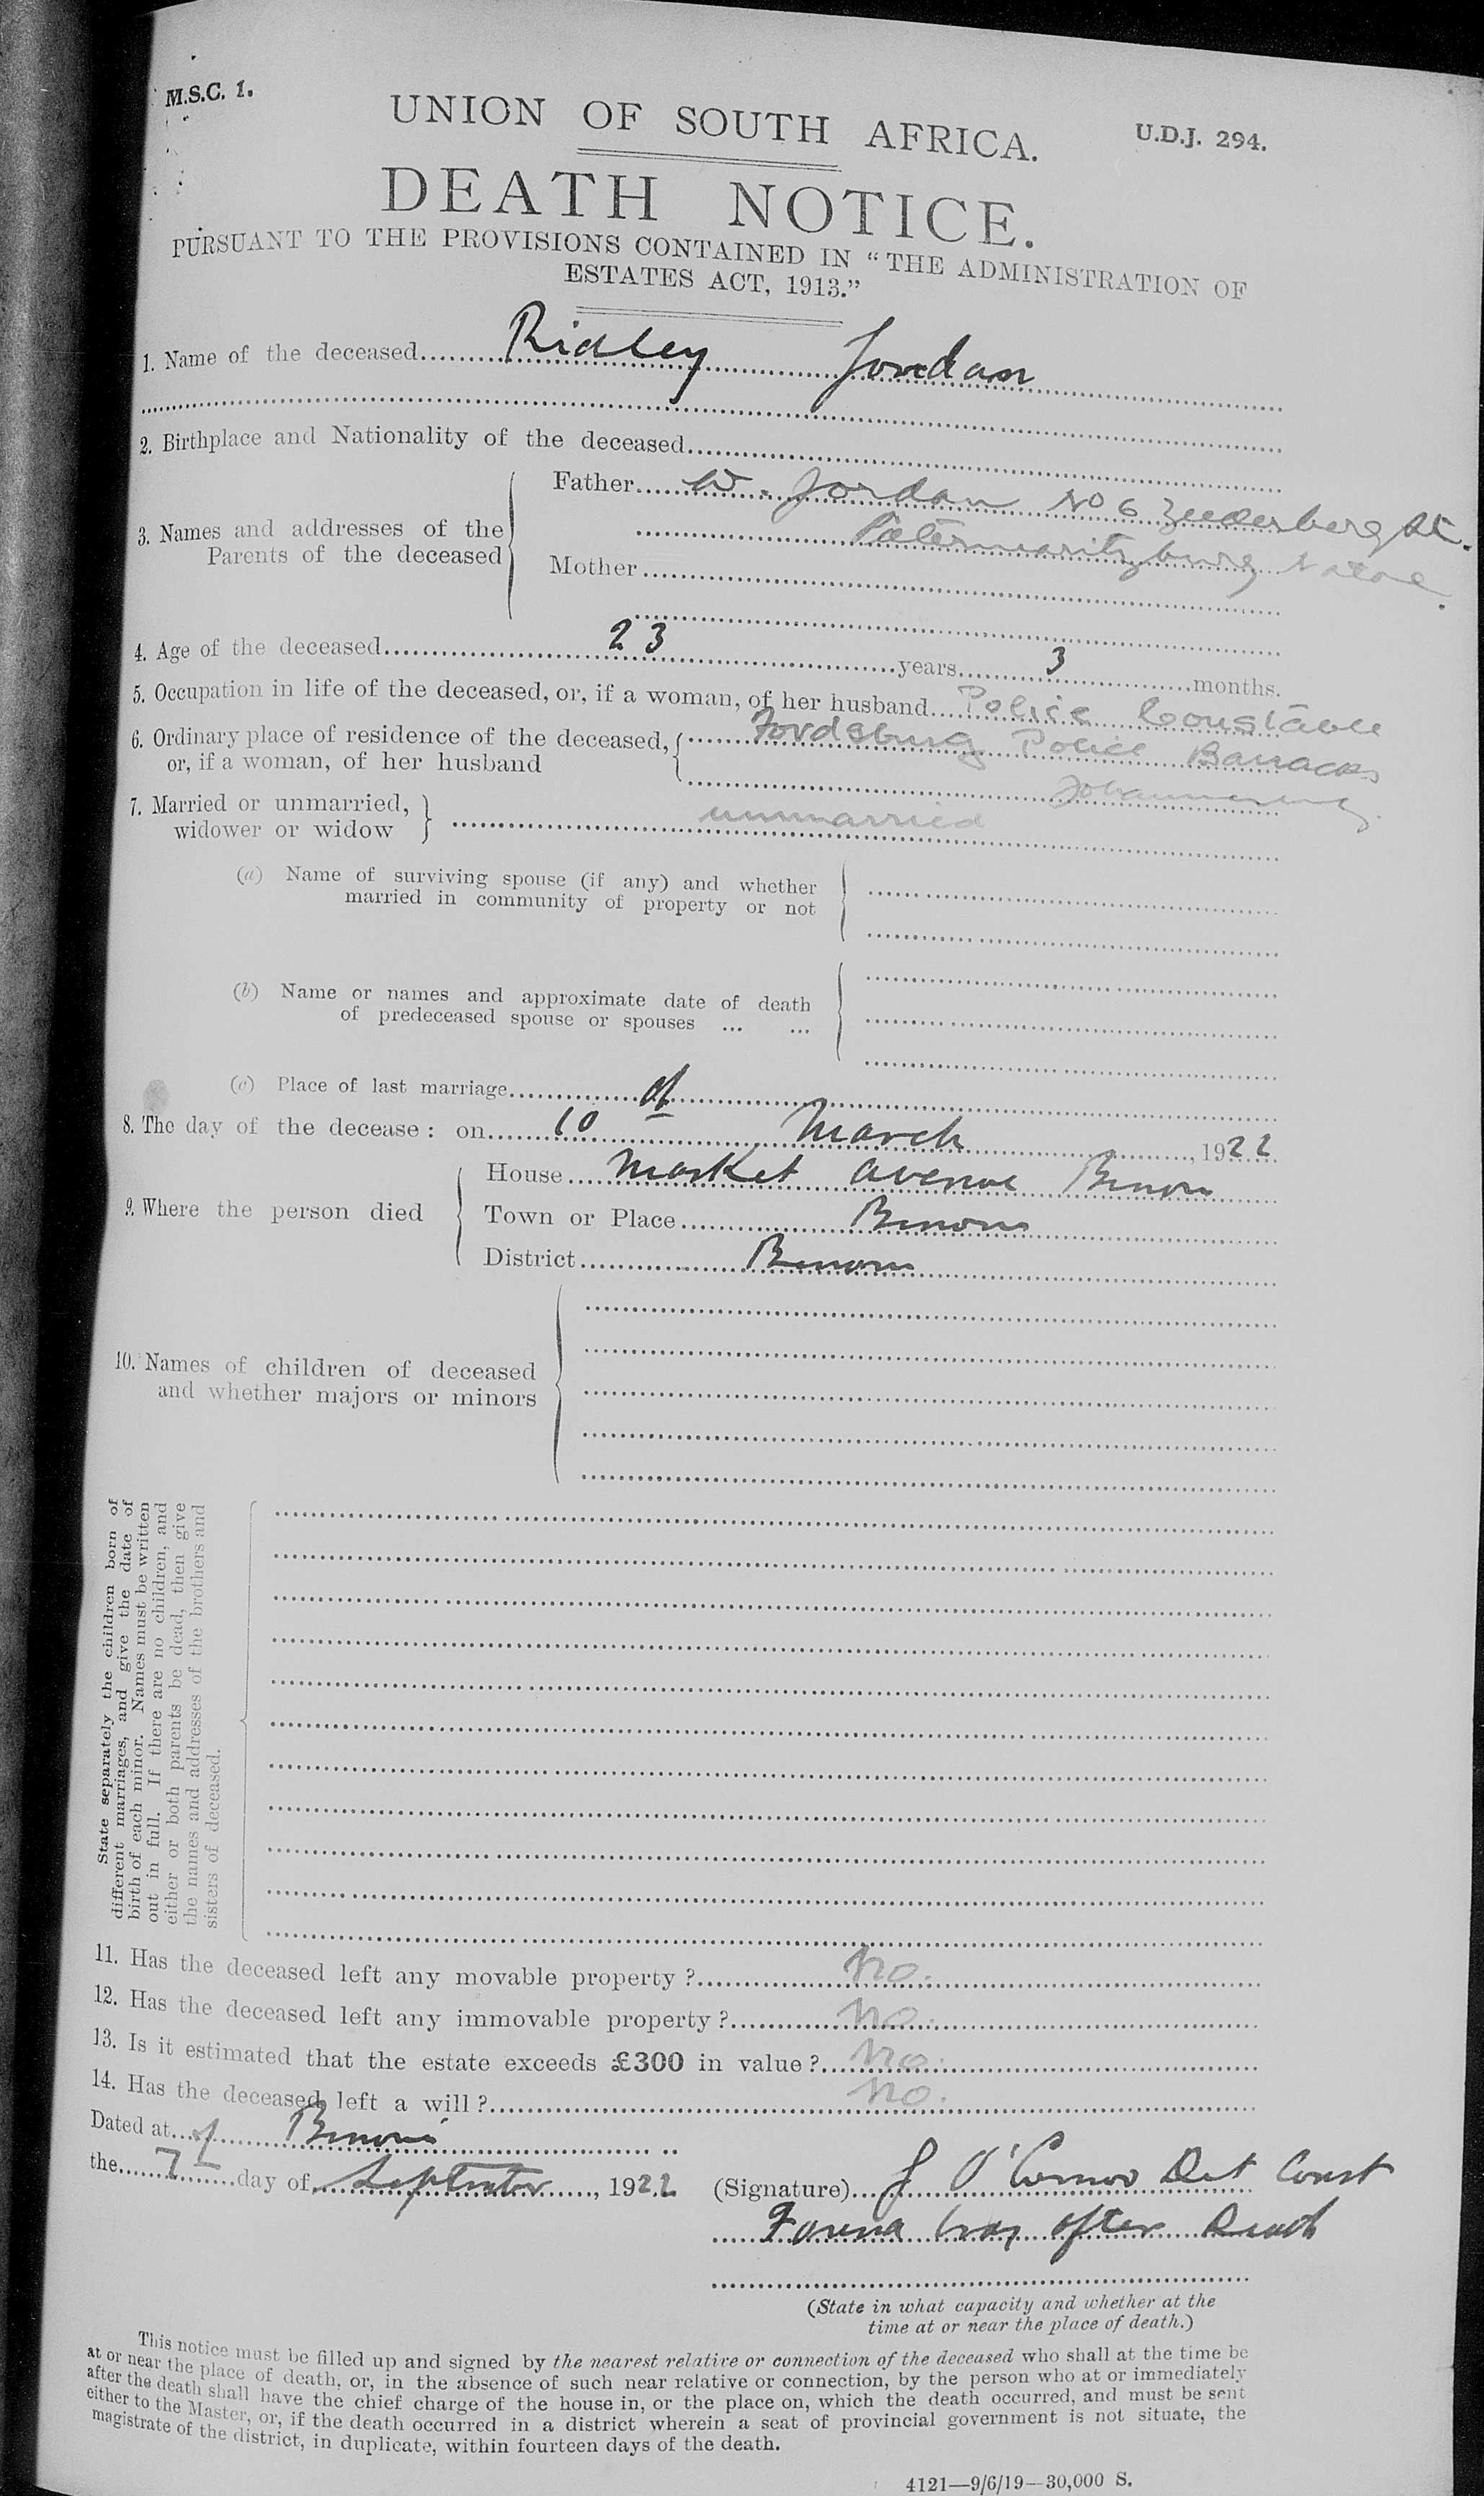 M.S.C. 1.
U.D.J. 294.
UNION OF SOUTH AFRICA.
DEATH NOTICE.
PURSUANT TO THE PROVISIONS CONTAINED IN “THE ADMINISTRATION OF
ESTATES ACT, 1913.”
1. Name of the deceased Ridley Jordan
2. Birthplace and Nationality of the deceased
3. Names and addresses of the
Parents of the deceased
Father W. Jordan No 6 Zeederberg St.
Pietermaritzburg Natal.
Mother
4. Age of the deceased 23 years 3 months.
5. Occupation in life of the deceased, or, if a woman, of her husband Police Constable
6. Ordinary place of residence of the deceased,
or, if a woman, of her husband
Fordsburg Police Barracks
Johannesburg.
7. Married or unmarried,
widower or widow
unmarried
(a) Name of surviving spouse (if any) and whether
married in community of property or not
(b) Name or names and approximate date of death
of predeceased spouse or spouses ... ...
(c) Place of last marriage
8. The day of the decease: on 10 March, 1922
9. Where the person died
House Market Avenue Benoni
Town or Place Benoni
District Benoni
10. Names of children of deceased
and whether majors or minors
State separately the children born of
different marriages, and give the date of
birth of each minor. Names must be written
out in full. If there are no children, and
either or both parents be dead, then give
the names and addresses of the brothers and
sisters of deceased.
11. Has the deceased left any movable property? No.
12. Has the deceased left any immovable property? No.
13. Is it estimated that the estate exceeds £300 in value? No.
14. Has the deceased left a will? No.
Dated at Benoni
the 7 day of September, 1922
(Signature) J O'Connor Det Const
Found body after Death
(State in what capacity and whether at the
time at or near the place of death.)
This notice must be filled up and signed by the nearest relative or connection of the deceased who shall at the time be
at or near the place of death, or, in the absence of such near relative or connection, by the person who at or immediately
after the death shall have the chief charge of the house in, or the place on, which the death occurred, and must be sent
either to the Master, or, if the death occurred in a district wherein a seat of provincial government is not situate, the
magistrate of the district, in duplicate, within fourteen days of the death.
4121—9/6/19—30,000 S.